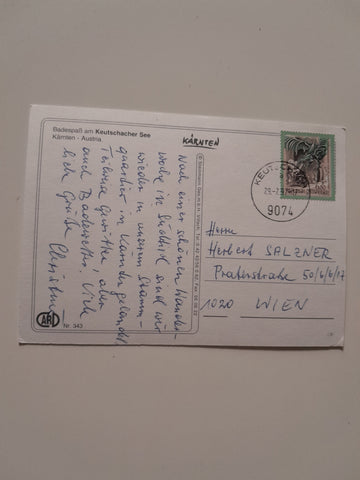 Badespaß am Keutschacher See
Kärnten - Austria
KÄRNTEN
Nach einer schönen Wander-
woche in Südtirol sind wir
wieder in unserem Stamm-
quartier in Kärnten gelandet.
Teilweise Gewitter, aber
auch Badewetter. Viele
liebe Grüße Christine
KEUTSCH
9074
Herrn
Herbert SALZNER
Praterstraße 50/6/6/17
1020 WIEN
Nr. 343